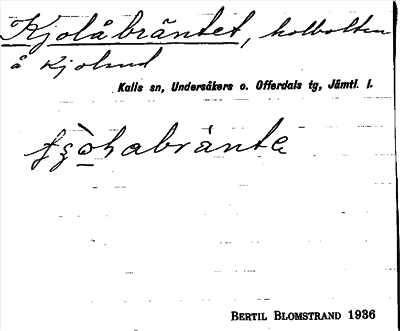 Kjolåbräntet, kolbotten
å Kjoland
Kalls sn, Undersåkers o. Offerdals tg, Jämtl. l.
BERTIL BLOMSTRAND 1936